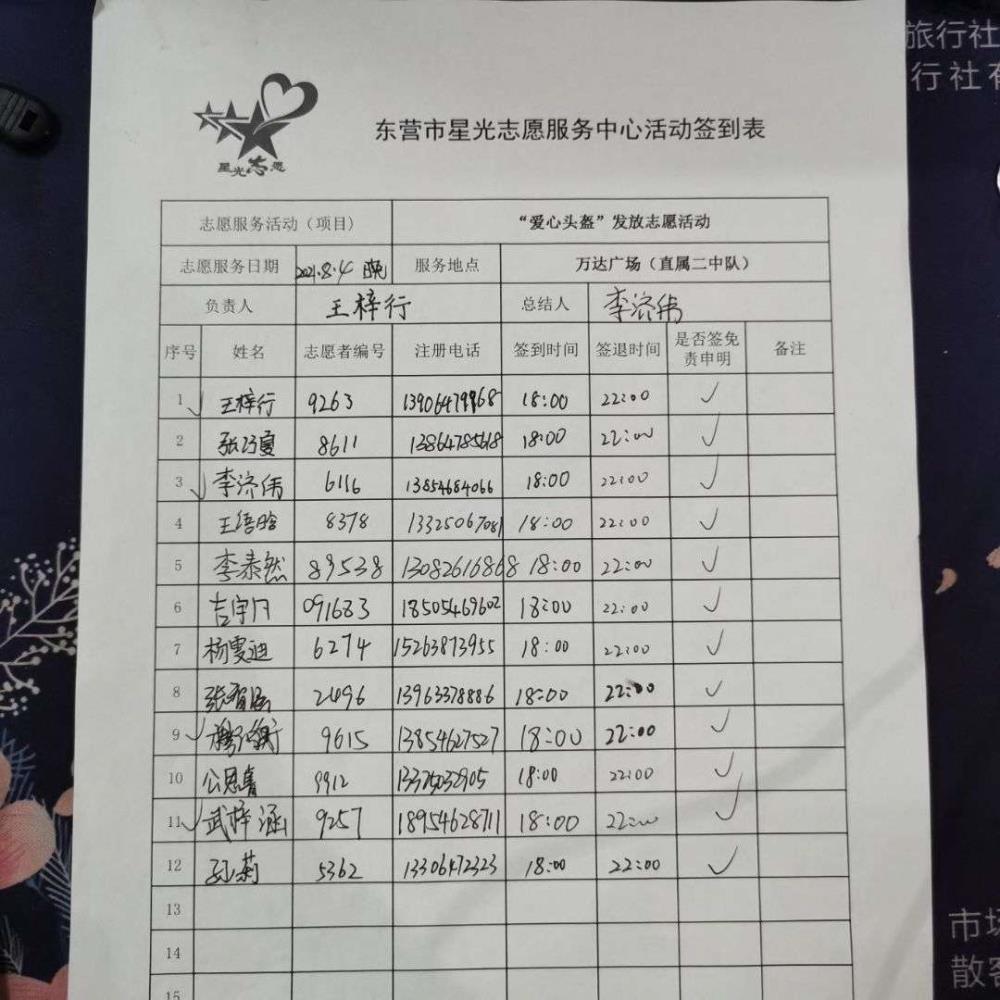 旅行社
行社有
星光志愿
东营市星光志愿服务中心活动签到表
志愿服务活动（项目） “爱心头盔”发放志愿活动
志愿服务日期 2021.8.4 晚 服务地点 万达广场（直属二中队）
负责人 王梓行 总结人 李济伟
序号 姓名 志愿者编号 注册电话 签到时间 签退时间 是否签免责申明 备注
1 王梓行 9263 13906479968 18:00 22:00 ✓
2 8611 13864785618 18:00 22:00 ✓
3 李济伟 6116 13854684066 18:00 22:00 ✓
4 8378 13325067081 18:00 22:00 ✓
5 李泰然 89538 13082616868 18:00 22:00 ✓
6 091683 18505469602 18:00 22:00 ✓
7 杨雯迪 6274 15263873955 18:00 22:00 ✓
8 2496 13963378886 18:00 22:00 ✓
9 9615 13854627527 18:00 22:00 ✓
10 9912 18:00 22:00 ✓
11 武梓涵 9257 18954628711 18:00 22:00 ✓
12 孙莉 5362 13306472323 18:00 22:00 ✓
13
14
15
市场
散客